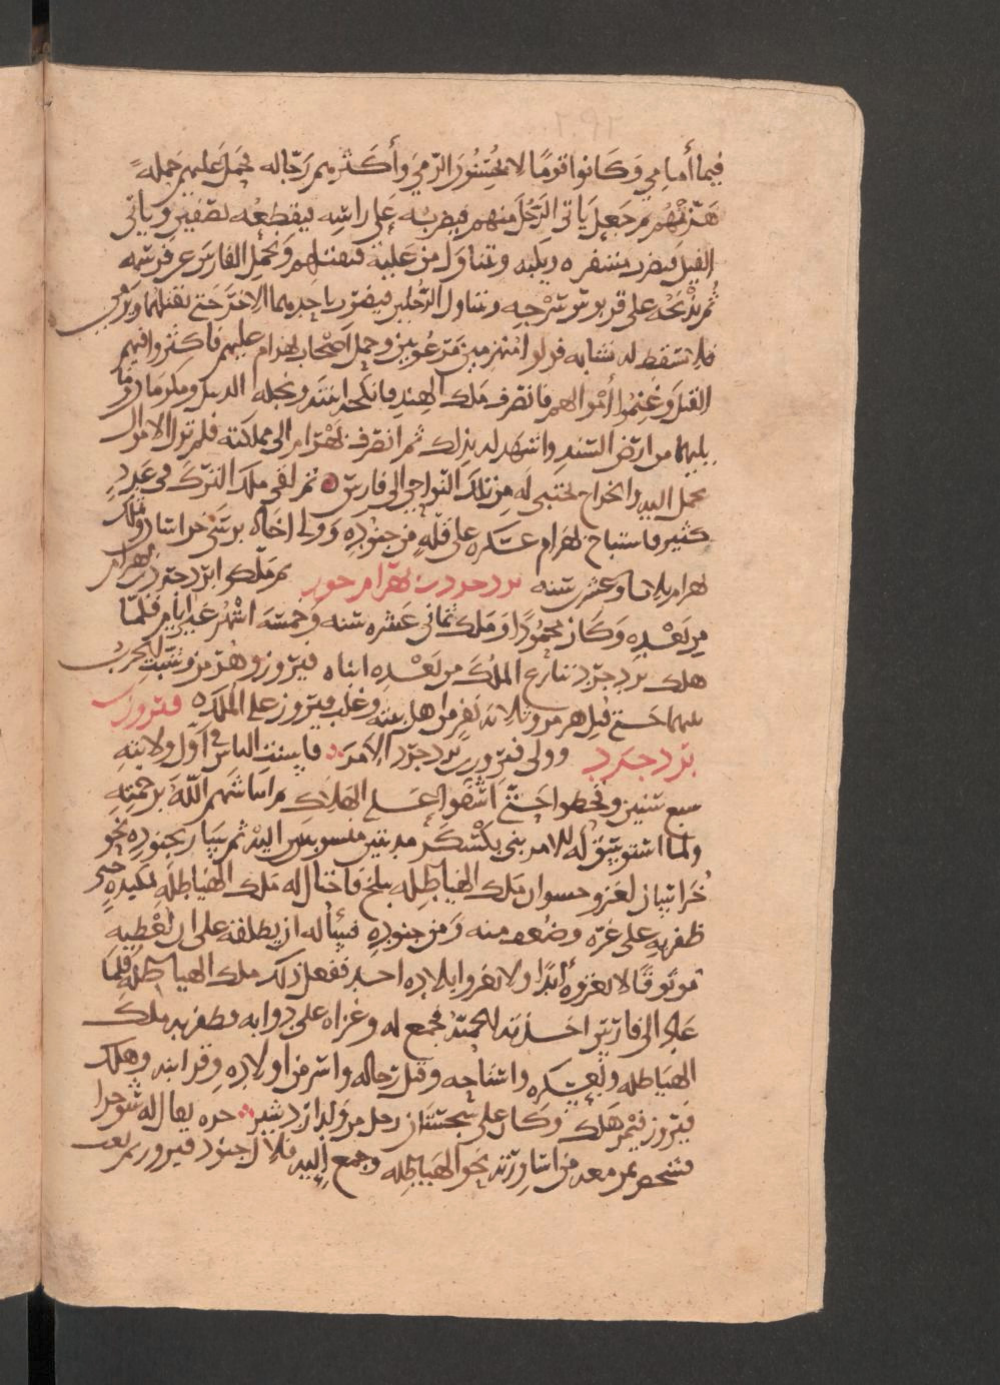 فيما أمامي وكانوا قومًا لا يحسنون الرمي وأكثرهم رجاله فحمل عليهم حملةً
هزمهم وجعل يأتي الرجل منهم فيضربه على راسه فيقطعه نصفين ويأتي
الفيل فيضرب مشفره ويكبه ويتناول من عليه فيقتلهم ويحمل الفارس عن فرسه
ثم يذبحه على قربوس سرجه ويتناول الرجلين فيضرب باحدهما الاخر حتى يقتلهما ويرمي
فلا تسقط له نشابه فولوا منهزمين مرعوبين وحمل اصحاب بهرام عليهم فاكثروا فيهم
القتل وغنموا أموالهم فانصرف ملك الهند فانكحه ابنته ونحله الديبل ومكرمان وما
يليهما من ارض السند واشهد له بذلك ثم انصرف بهرام الى مملكته فلم تزل الاموال
تحمل اليه والخراج يجتبي له من تلك النواحي الى فارس ثم لقي ملك الترك في عدد
كثير فاستباح بهرام عسكره على قلة من جنوده وولى اخاه نرسي خراسان وملك
بهرام ثلاثا وعشرين سنه يزدجرد بن بهرام جور ثم ملكوا يزدجرد بن بهرام
من بعده وكان محمودًا وملك ثماني عشره سنه وخمسة اشهر غير ايام فلما
هلك يزدجرد تنازع الملك من بعده ابناه فيروز وهرمز ونشبت الحرب
بينهما حتى قتل هرمز وثلاثة نفر من اهل بيته وغلب فيروز على الملك فيروز بن
يزدجرد وولى فيروز بن يزدجرد الامر فاسنت الناس في أول ولايته
سبع سنين وقحطوا حتى اشفوا على الهلاك ثم اغاثهم الله برحمته
ولما استوسق له الامر بنى بكسكر مدينتين منسوبتين اليه ثم سار بجنوده نحو
خراسان لغزو ملك الهياطله ببلخ فاحتال له ملك الهياطله بمكيده حتى
ظفر به على غره وضعف منه ومن جنوده فسأله ان يطلقه على ان يعطيه
موثوقًا لا يغزوه أبدًا ولا يغزو بلاده احد ففعل ذلك ملك الهياطله فلما
عاد الى فارس اخذته الحميّة فجمع له وغزاه فظفر به ملك
الهياطله وبعسكره واستباحه وقتل رجاله واسر من اولاده وهلك
فيروز فيمن هلك وكان على سجستان رجل من ولد اردشير يقال له شوخرا
فشخص بمن معه من اساورته نحو الهياطله وجمع إليه فلال جنود فيروز